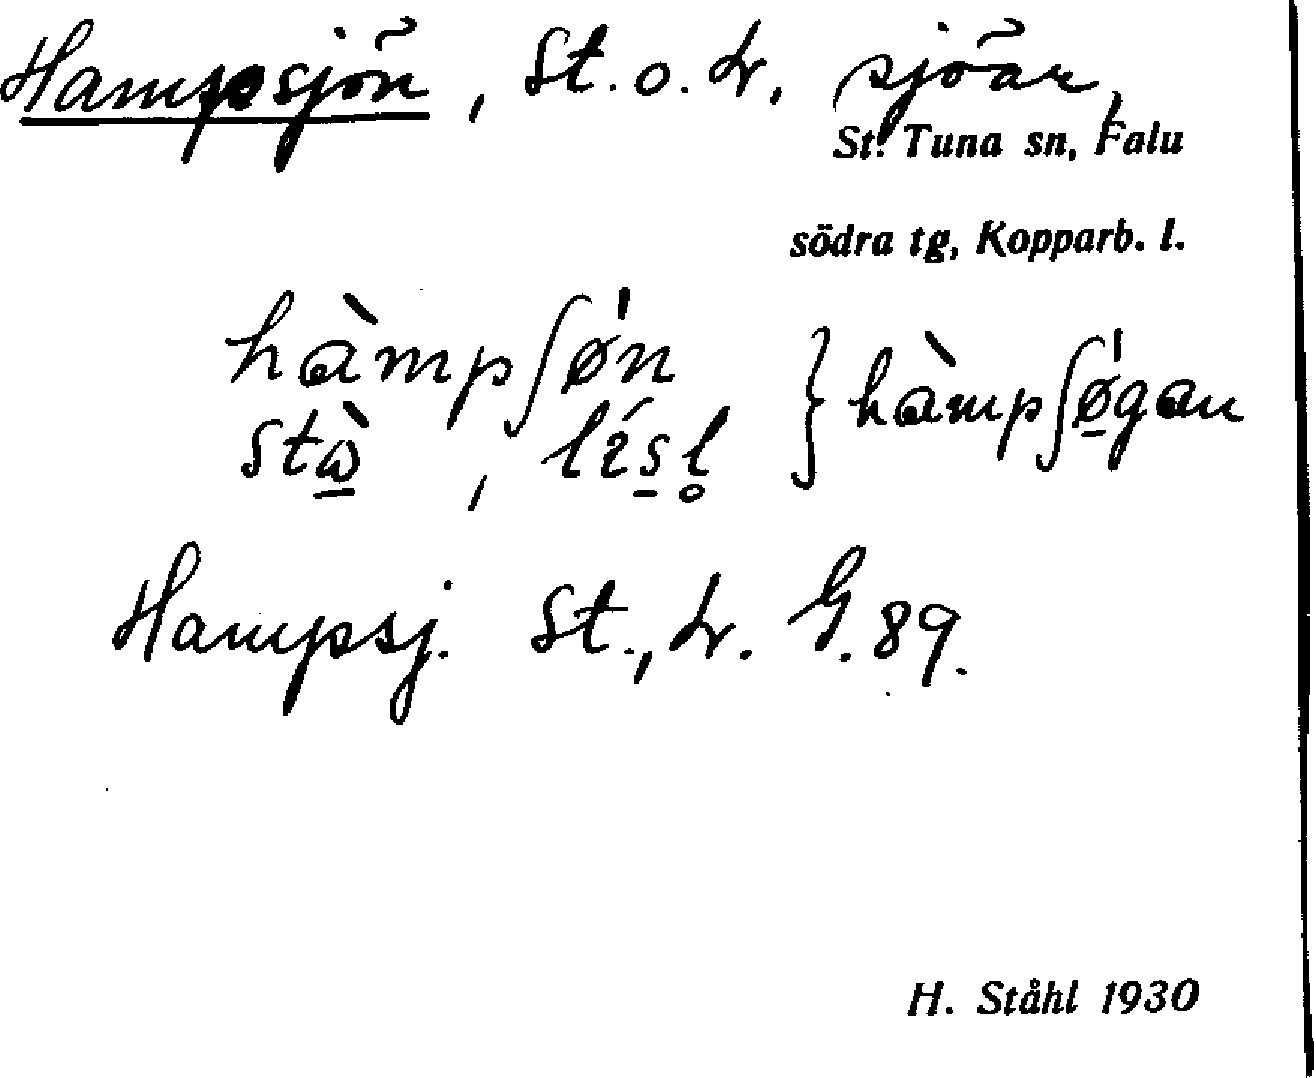 Hampsjön, St. o. L. sjöar,
St. Tuna sn, Falu
södra tg, Kopparb. l.
hàmpʃø̍n } hàmpʃø̠̍gan
stὼ̠, lís̠l̥
Hampsj. St., L. G. 89.
H. Ståhl 1930